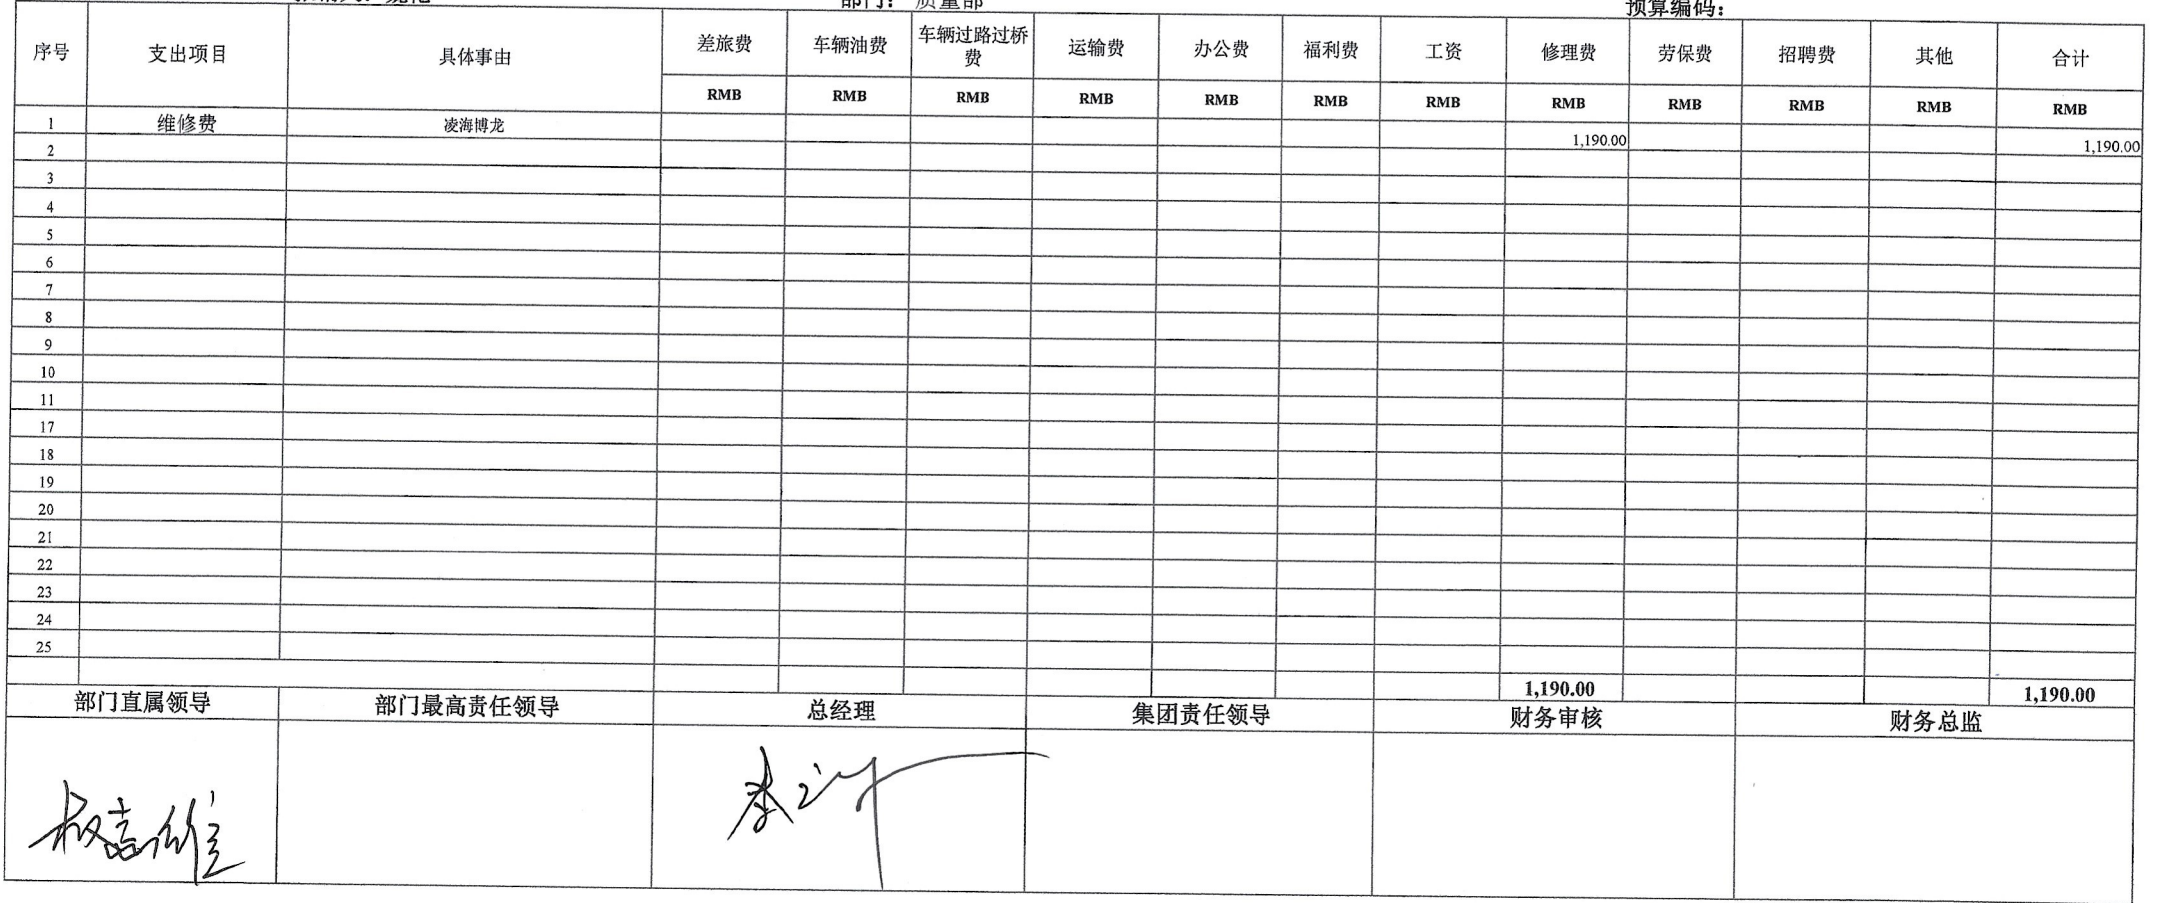 部门： 质量部
预算编码：
序号 支出项目 具体事由 差旅费 车辆油费 车辆过路过桥费 运输费 办公费 福利费 工资 修理费 劳保费 招聘费 其他 合计
RMB RMB RMB RMB RMB RMB RMB RMB RMB RMB RMB RMB
1 维修费 凌海博龙 1,190.00 1,190.00
2
3
4
5
6
7
8
9
10
11
17
18
19
20
21
22
23
24
25
1,190.00 1,190.00
部门直属领导 部门最高责任领导 总经理 集团责任领导 财务审核 财务总监